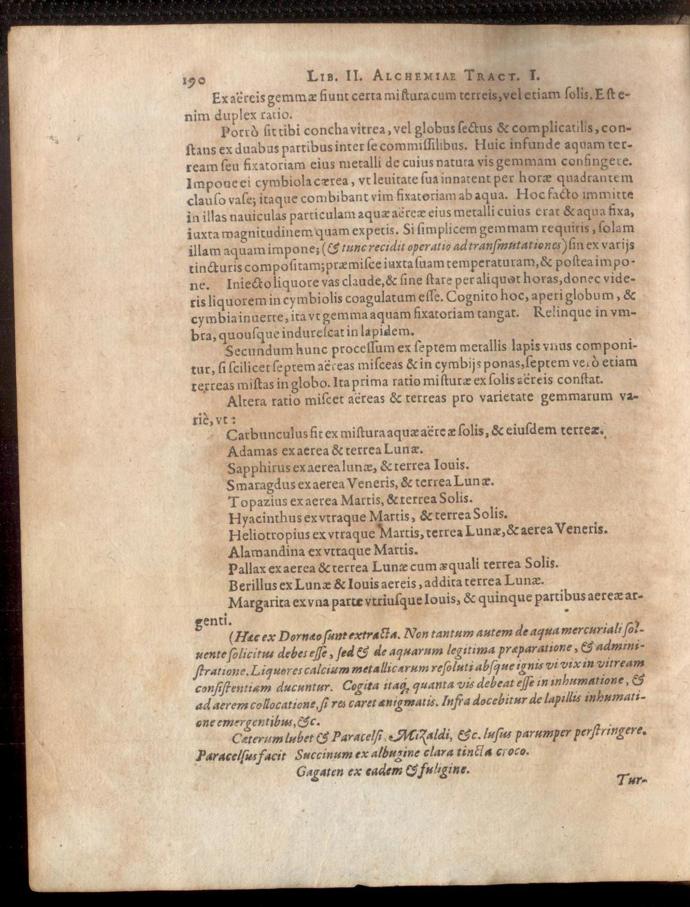 190 LIB. II. ALCHEMIAE TRACT. I.
Ex aëreis gemmæ fiunt certa mistura cum terreis, vel etiam solis. Est e-
nim duplex ratio.
Porrò sit tibi concha vitrea, vel globus sectus & complicatilis, con-
stans ex duabus partibus inter se commissilibus. Huic infunde aquam ter-
ream seu fixatoriam eius metalli de cuius natura vis gemmam confingere.
Impone ei cymbiola cærea, vt leuitate sua innatent per horæ quadrantem
clauso vase; itaque combibant vim fixatoriam ab aqua. Hoc facto immitte
in illas nauiculas particulam aquæ aëreæ eius metalli cuius erat & aqua fixa,
iuxta magnitudinem quam expetis. Si simplicem gemmam requiris, solam
illam aquam impone; (& tunc recidit operatio ad transmutationes) sin ex varijs
tincturis compositam; præmisce iuxta suam temperaturam, & postea impo-
ne. Iniecto liquore vas claude, & sine stare per aliquot horas, donec vide-
ris liquorem in cymbiolis coagulatum esse. Cognito hoc, aperi globum, &
cymbia inuerte, ita vt gemma aquam fixatoriam tangat. Relinque in vm-
bra, quousque indurescat in lapidem.
Secundum hunc processum ex septem metallis lapis vnus componi-
tur, si scilicet septem aëreas misceas & in cymbijs ponas, septem verò etiam
terreas mistas in globo. Ita prima ratio misturæ ex solis aëreis constat.
Altera ratio miscet aëreas & terreas pro varietate gemmarum va-
riè, vt:
Carbunculus fit ex mistura aquæ aëreæ solis, & eiusdem terreæ.
Adamas ex aerea & terrea Lunæ.
Sapphirus ex aerea lunæ, & terrea Iouis.
Smaragdus ex aerea Veneris, & terrea Lunæ.
Topazius ex aerea Martis, & terrea Solis.
Hyacinthus ex vtraque Martis, & terrea Solis.
Heliotropius ex vtraque Martis, terrea Lunæ, & aerea Veneris.
Alamandina ex vtraque Martis.
Pallax ex aerea & terrea Lunæ cum æquali terrea Solis.
Berillus ex Lunæ & Iouis aereis, addita terrea Lunæ.
Margarita ex vna parte vtriusque Iouis, & quinque partibus aereæ ar-
genti.
(Hæc ex Dornæo sunt extracta. Non tantum autem de aqua mercuriali sol-
uente solicitus debes esse, sed & de aquarum legitima præparatione, & admini-
stratione. Liquores calcium metallicarum resoluti absque ignis vi vix in vitream
consistentiam ducuntur. Cogita itaq, quanta vis debeat esse in inhumatione, &
ad aerem collocatione, si res caret ænigmatis. Infra docebitur de lapillis inhumati-
one emergentibus, &c.
Cæterum lubet & Paracelsi, Mizaldi, &c. lusus parumper perstringere.
Paracelsus facit Succinum ex albugine clara tincta croco.
Gagaten ex eadem & fuligine.
Tur-